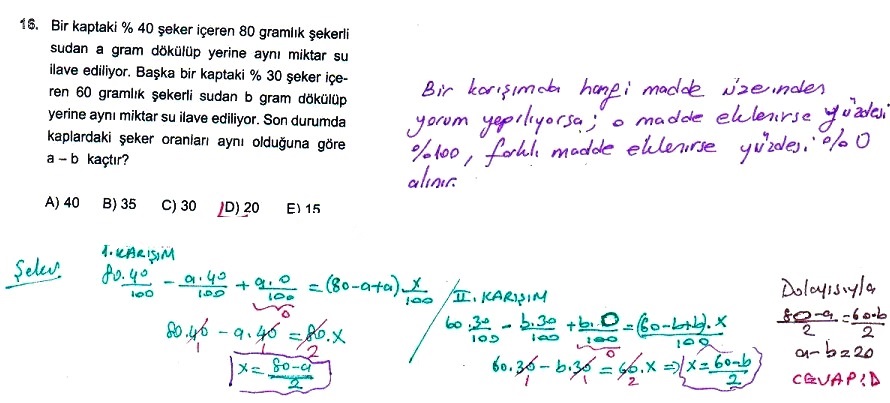 16. Bir kaptaki % 40 şeker içeren 80 gramlık şekerli
sudan a gram dökülüp yerine aynı miktar su
ilave ediliyor. Başka bir kaptaki % 30 şeker içe-
ren 60 gramlık şekerli sudan b gram dökülüp
yerine aynı miktar su ilave ediliyor. Son durumda
kaplardaki şeker oranları aynı olduğuna göre
a – b kaçtır?
A) 40 B) 35 C) 30 D) 20 E) 15
Bir karışımda hangi madde üzerinden
yorum yapılıyorsa; o madde eklenirse yüzdesi
%100, farklı madde eklenirse yüzdesi %0
alınır.
Şeker
1. KARIŞIM
80.40/100 - a.40/100 + a.0/100 = (80-a+a).x/100
0
80.40 - a.40 = 80.x
1 1 2
x = 80-a/2
II. KARIŞIM
60.30/100 - b.30/100 + b.0/100 = (60-b+b).x/100
0
60.30 - b.30 = 60.x => x = 60-b/2
1 1 2
Dolayısıyla
80-a/2 = 60-b/2
a-b=20
CEVAP:D